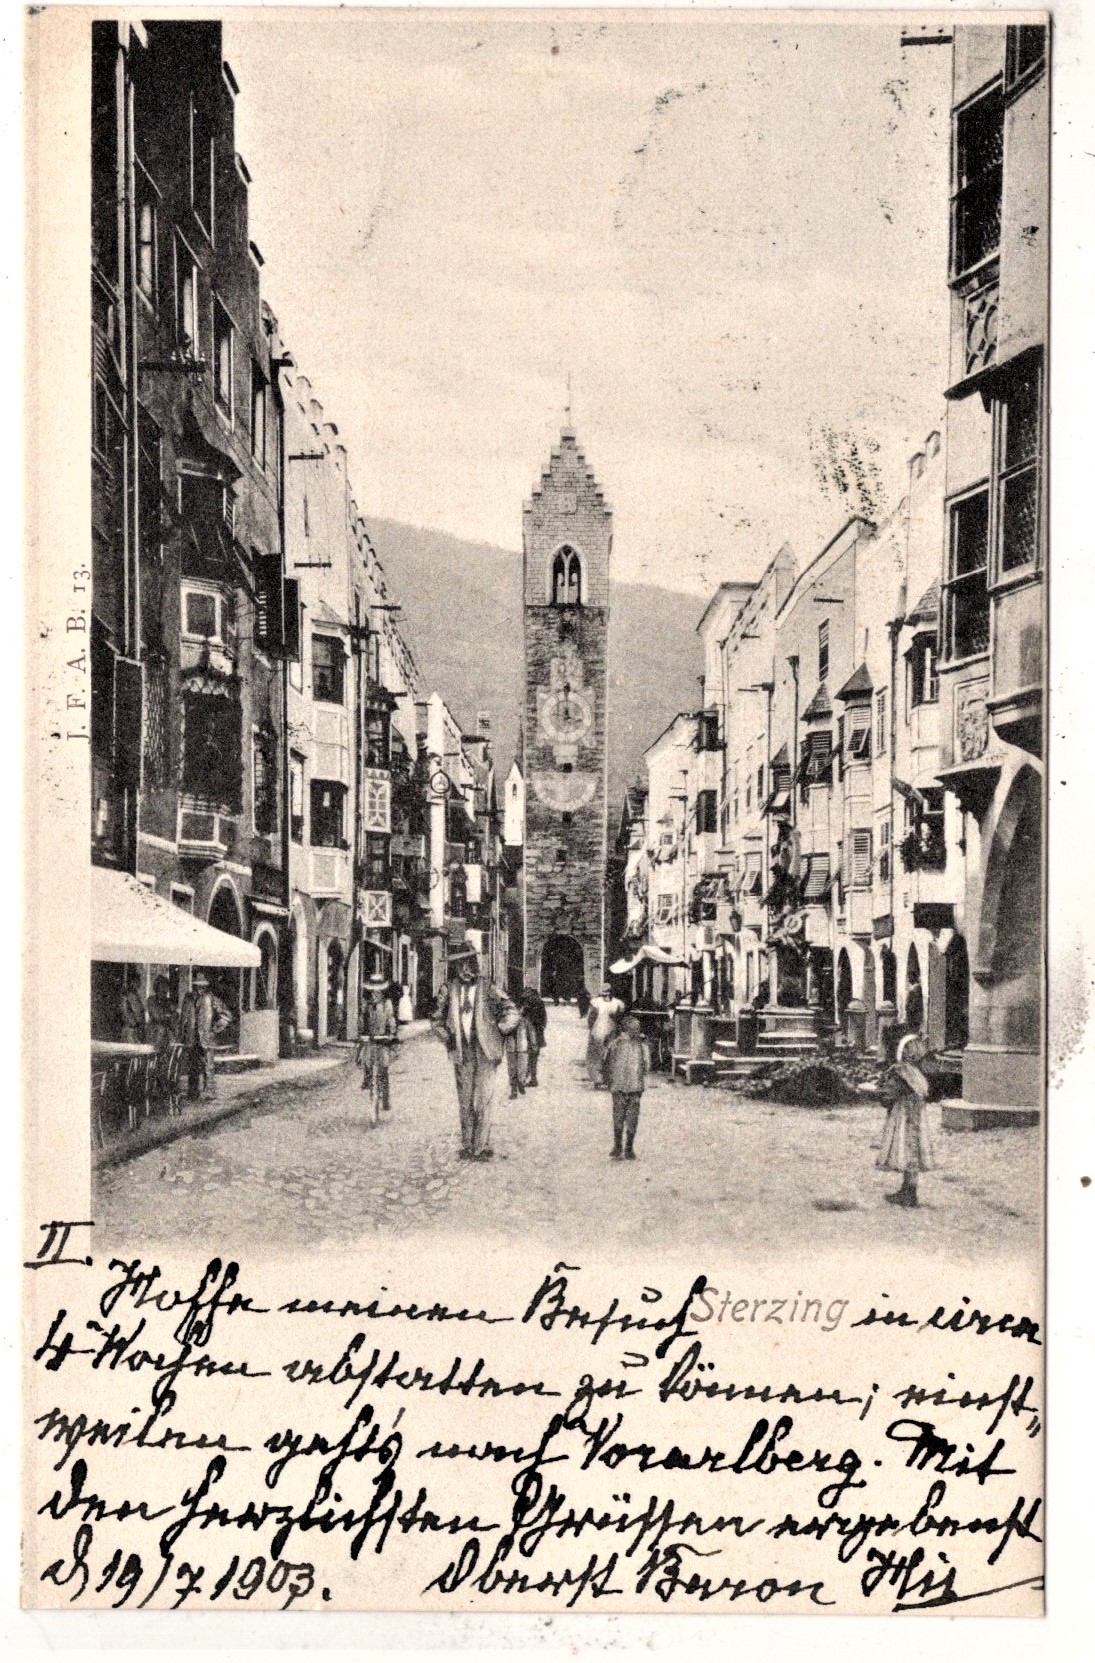 J. F. A. B. 13.
Sterzing
II.
Hoffe meinen Besuch in circa
4 Wochen abstatten zu können; einst„
weilen geht's nach Vorarlberg. Mit
den herzlichsten Grüssen ergebenst
d 19/7 1903. Oberst Baron